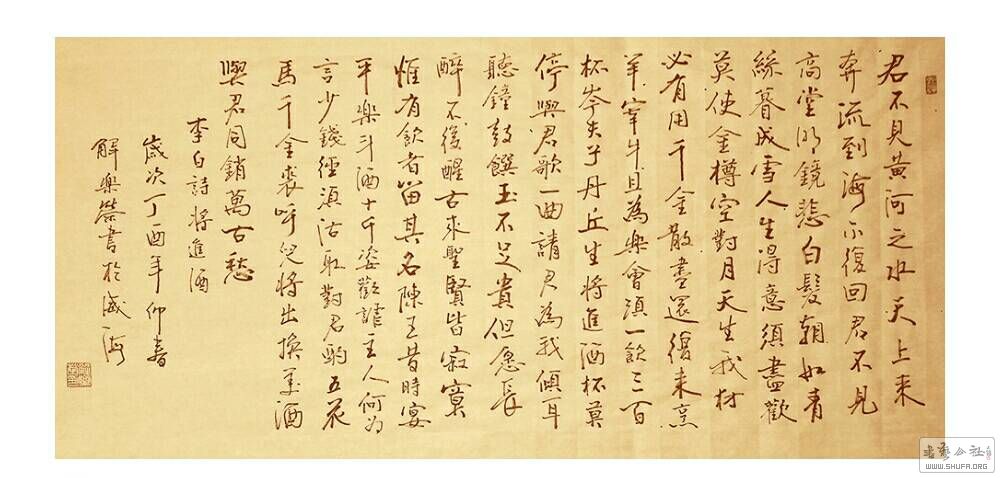 君不見黄河之水天上来
奔流到海不復回君不見
高堂明鏡悲白髮朝如青
絲暮成雪人生得意須盡歡
莫使金樽空對月天生我材
必有用千金散盡還復来烹
羊宰牛且為樂會須一飲三百
杯岑夫子丹丘生將進酒杯莫
停與君歌一曲請君為我傾耳
聽鐘鼓饌玉不足貴但愿長
醉不復醒古来聖賢皆寂寞
惟有飲者留其名陳王昔時宴
平樂斗酒十千姿歡謔主人何为
言少錢徑須沽取對君酌五花
馬千金裘呼兒將出換美酒
與君同銷萬古愁
李白詩將進酒
歲次丁酉年仲春
解樂榮書於威海
WWW.SHUFA.ORG